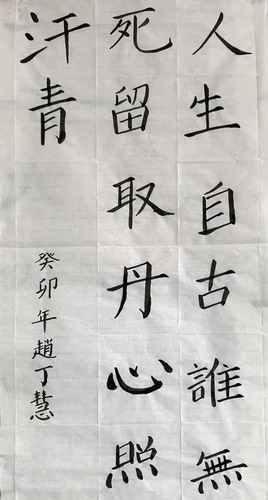 人生自古誰無
死留取丹心照
汗青
癸卯年趙丁慧